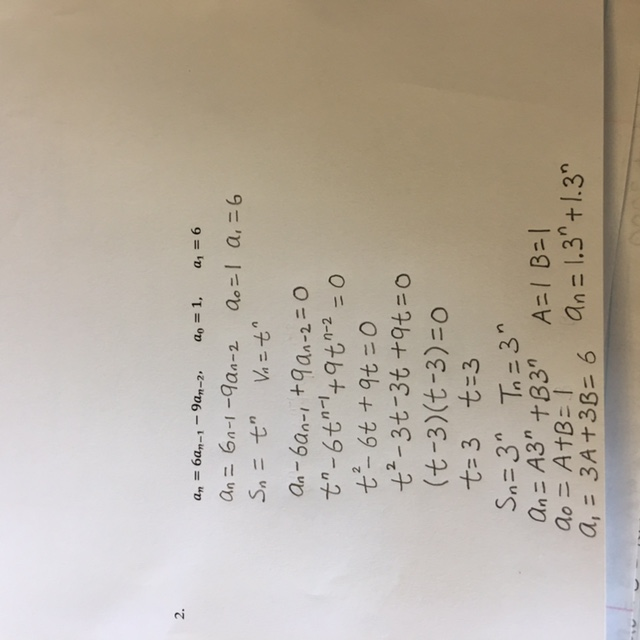 2.
aₙ = 6aₙ₋₁ − 9aₙ₋₂, a₀ = 1, a₁ = 6
aₙ = 6ₙ₋₁ − 9aₙ₋₂ a₀ = 1 a₁ = 6
Sₙ = tⁿ Vₙ = tⁿ
aₙ − 6aₙ₋₁ + 9aₙ₋₂ = 0
tⁿ − 6tⁿ⁻¹ + 9tⁿ⁻² = 0
t² − 6t + 9t = 0
t² − 3t − 3t + 9t = 0
(t − 3)(t − 3) = 0
t = 3 t = 3
Sₙ = 3ⁿ Tₙ = 3ⁿ
aₙ = A3ⁿ + B3ⁿ
a₀ = A + B = 1 A = 1 B = 1
a₁ = 3A + 3B = 6 aₙ = 1.3ⁿ + 1.3ⁿ